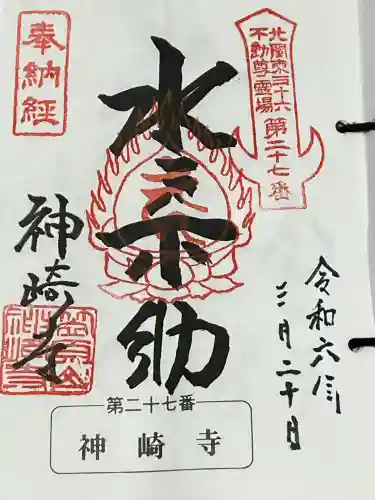 奉納経
北関東三十六
不動尊霊場
第二十七番
令和六年
三月二十日
水不動
神崎寺
第二十七番
神崎寺